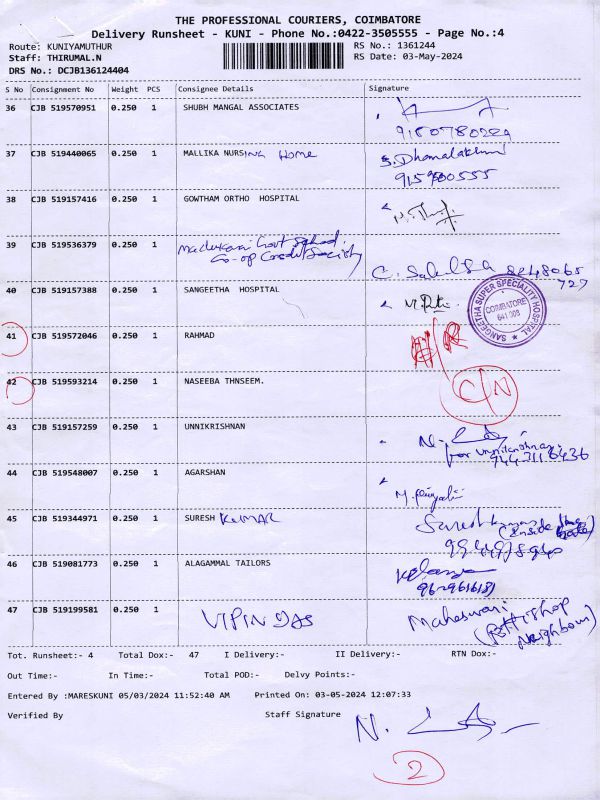 THE PROFESSIONAL COURIERS, COIMBATORE
Delivery Runsheet - KUNI - Phone No.:0422-3505555 - Page No.:4
Route: KUNIYAMUTHUR RS No.: 1361244
Staff: THIRUMAL.N RS Date: 03-May-2024
DRS No.: DCJB136124404
S No Consignment No Weight PCS Consignee Details Signature
36 CJB 519570951 0.250 1 SHUBH MANGAL ASSOCIATES
37 CJB 519440065 0.250 1 MALLIKA NURSING Home
38 CJB 519157416 0.250 1 GOWTHAM ORTHO HOSPITAL
39 CJB 519536379 0.250 1 Govt School
Co-op Credit Society
40 CJB 519157388 0.250 1 SANGEETHA HOSPITAL
SANGEETHA SUPER SPECIALITY HOSPITAL
COIMBATORE
641 008
41 CJB 519572046 0.250 1 RAHMAD
42 CJB 519593214 0.250 1 NASEEBA THNSEEM. C/N
43 CJB 519157259 0.250 1 UNNIKRISHNAN
for unnikrishnan
9443116436
44 CJB 519548007 0.250 1 AGARSHAN
45 CJB 519344971 0.250 1 SURESH KUMAR Suresh Kumar
46 CJB 519081773 0.250 1 ALAGAMMAL TAILORS
9629616181
47 CJB 519199581 0.250 1 VIPIN DAS Maheswari
Neighbour)
Tot. Runsheet:- 4 Total Dox:- 47 I Delivery:- II Delivery:- RTN Dox:-
Out Time:- In Time:- Total POD:- Delvy Points:-
Entered By :MARESKUNI 05/03/2024 11:52:40 AM Printed On: 03-05-2024 12:07:33
Verified By Staff Signature
2